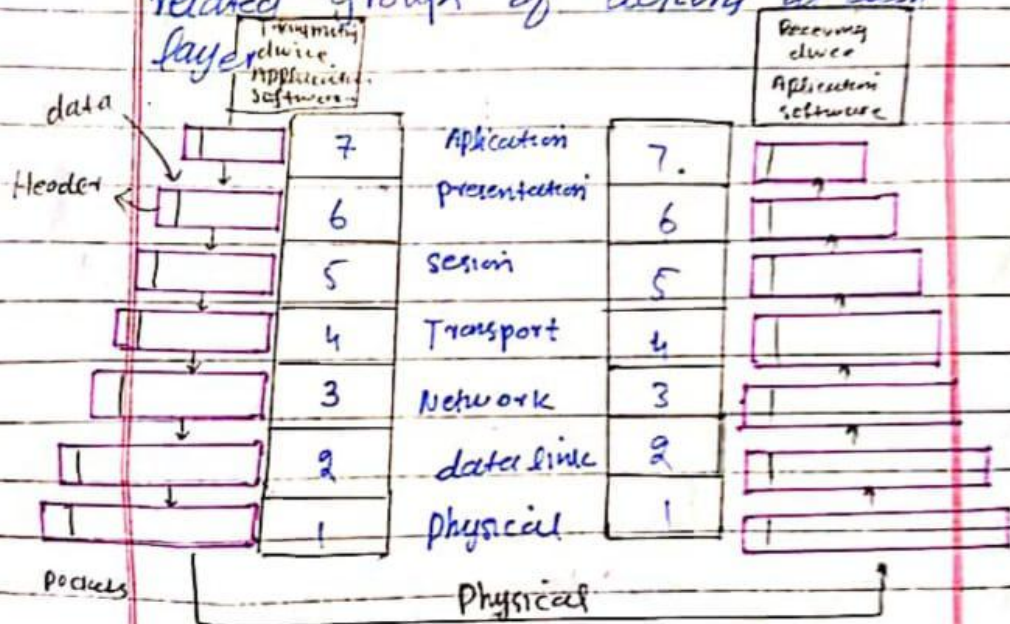 related group of actions as each
layer
Transmitting
device
Application
Software
Receiving
device
Aplication
software
data
Header
7 Aplication 7.
6 presentation 6
5 sesion 5
4 Transport 4
3 Network 3
2 data link 2
1 physical 1
Packets
Physical